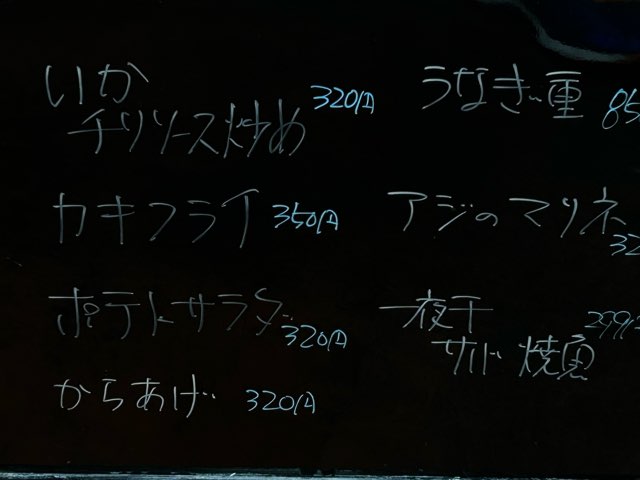 いか
チリソース炒め 320円
カキフライ 350円
ポテトサラダ 320円
からあげ 320円
うなぎ重 85
アジのマリネ 32
一夜干
焼魚 299